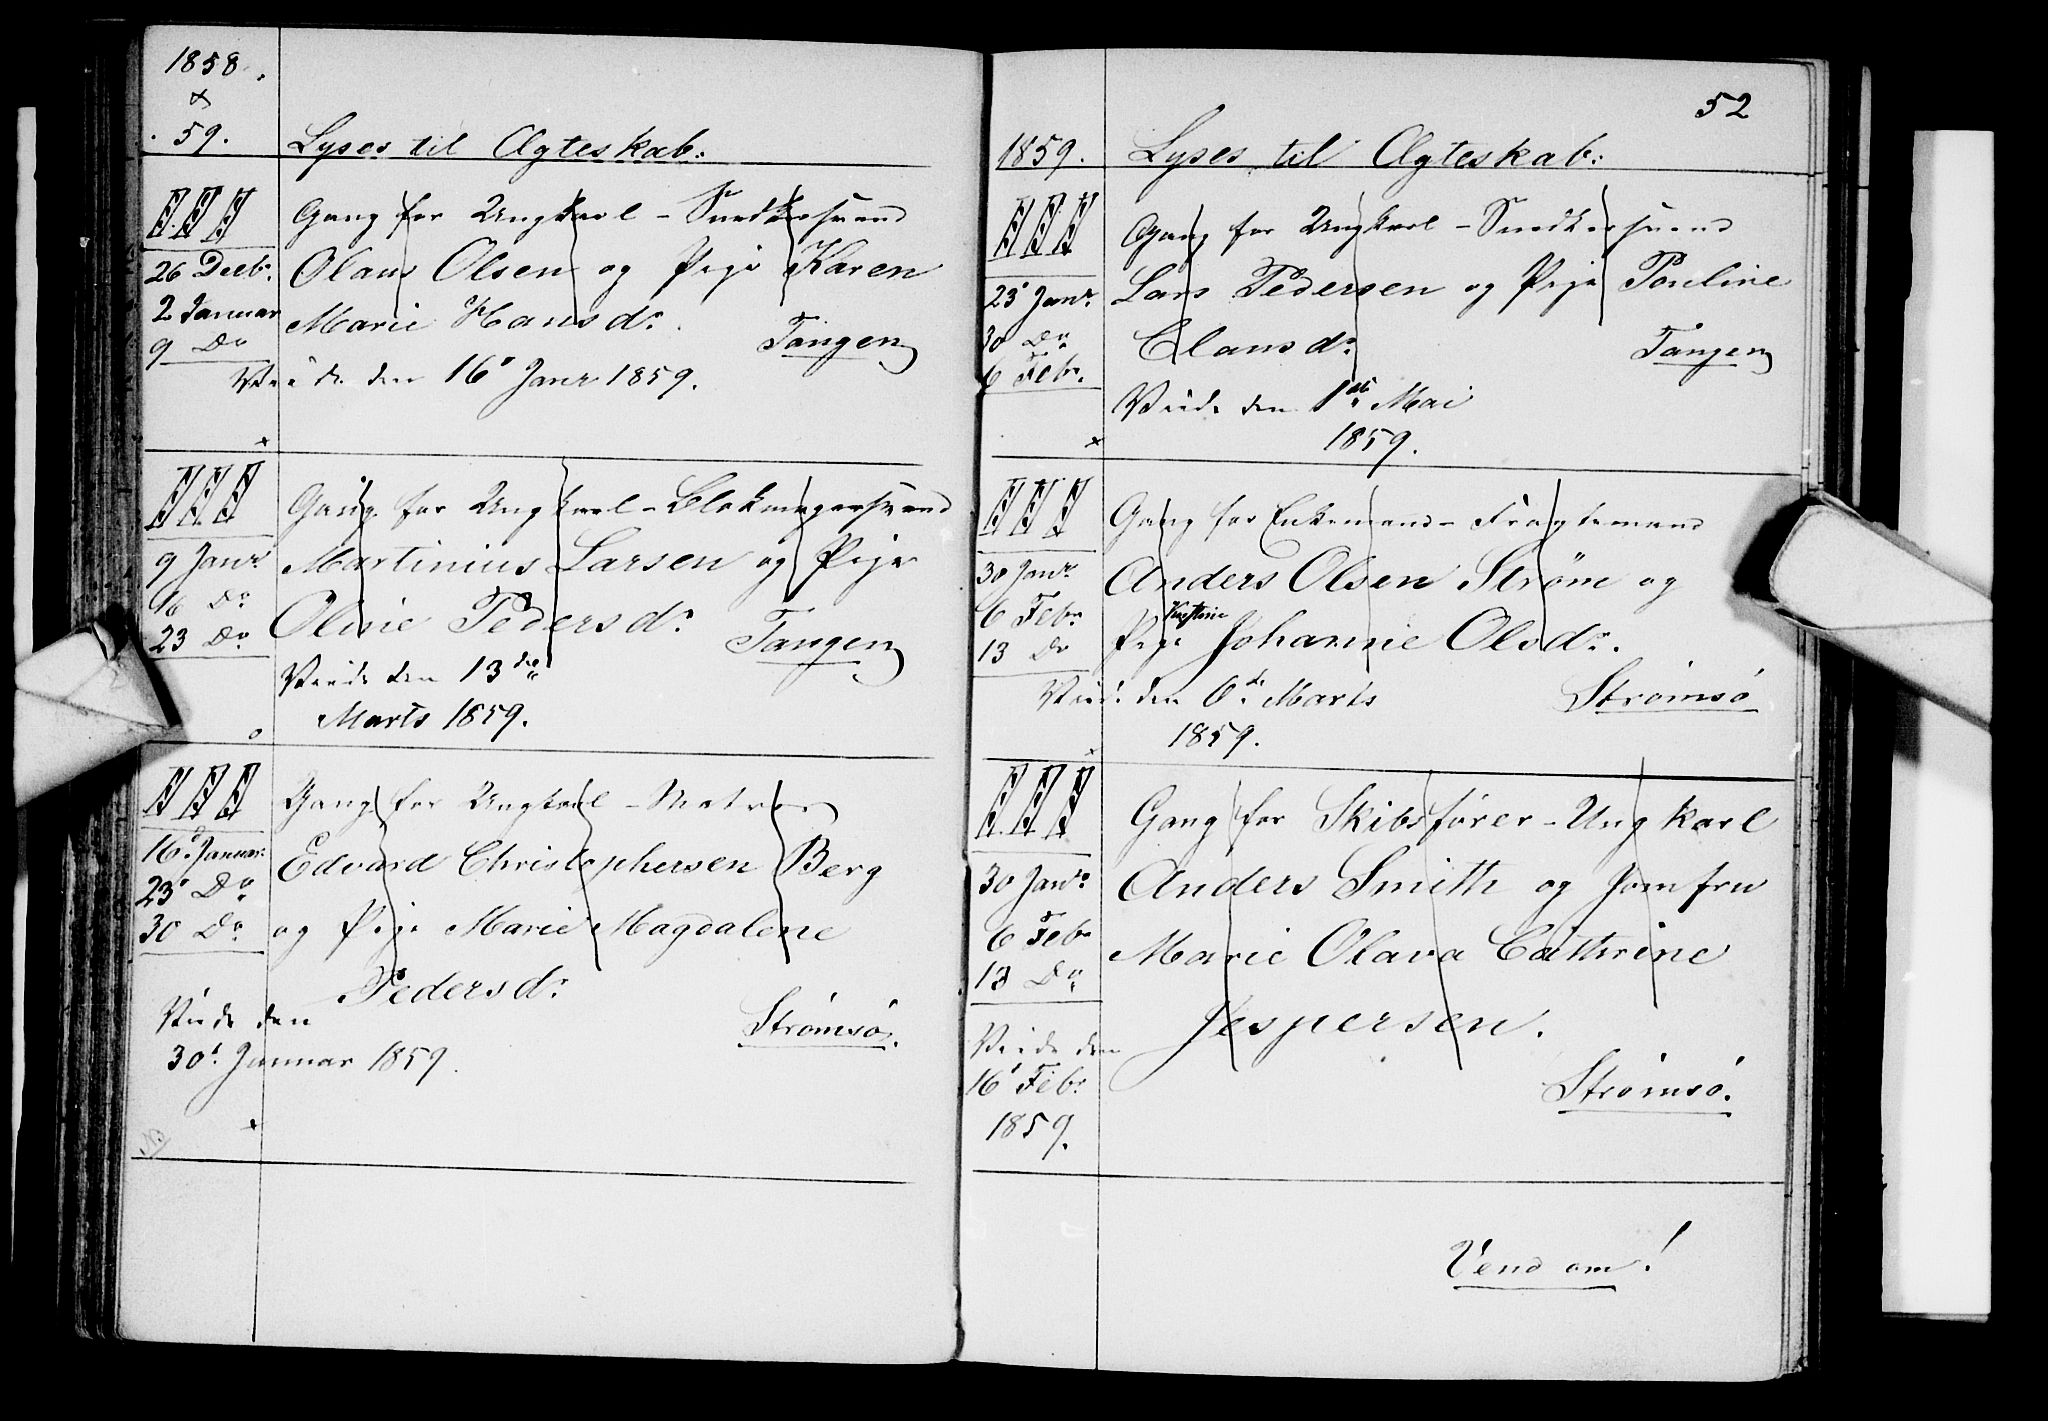 1858.
&
59.
Lyses til Ægteskab:
III
Gang for Ungkarl - Snedkersvend
26 Decbr.
Olaus Olsen og Pige Karen
2 Januar
Marie Hansdr.
Tangen
9 Do
Viede den 16de Janr 1859.
III
Gang for Ungkarl - Blokmagersvend
9 Janr.
Martinius Larsen og Pige
16 Do
Oline Pedersdr.
23 Do
Tangen
Viede den 13de
Marts 1859.
III
Gang for Ungkarl - Matros
16 Januar
Edvard Christophersen Berg
23 Do
og Pige Marie Magdalene
30 Do
Pedersdr.
Viede den
Strømsø.
30 Januar 1859.
52
1859.
Lyses til Ægteskab:
III
Gang for Ungkarl - Snedkersvend
23 Janr.
Lars Pedersen og Pige Pauline
30 Do
Clausdr.
Tangen
6 Febr.
Viede den 1ste Mai
1859.
III
Gang for Enkemand - Fragtemand
30 Janr.
Anders Olsen Strøm og
6 Febr.
Pige Johanne Olsdr.
13 Do
Viede den 6te Marts
Strømsø
1859.
III
Gang for Skibsfører - Ungkarl
30 Janr.
Anders Smith og Jomfru
6 Febr
Marie Olava Cathrine
13 Do
Jespersen.
Viede den
16 Febr.
Strømsø.
1859.
Vend om!